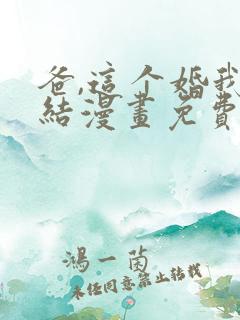 爸,這个婚我
結漫畫免費
鴻一茵
未经同意禁止转载